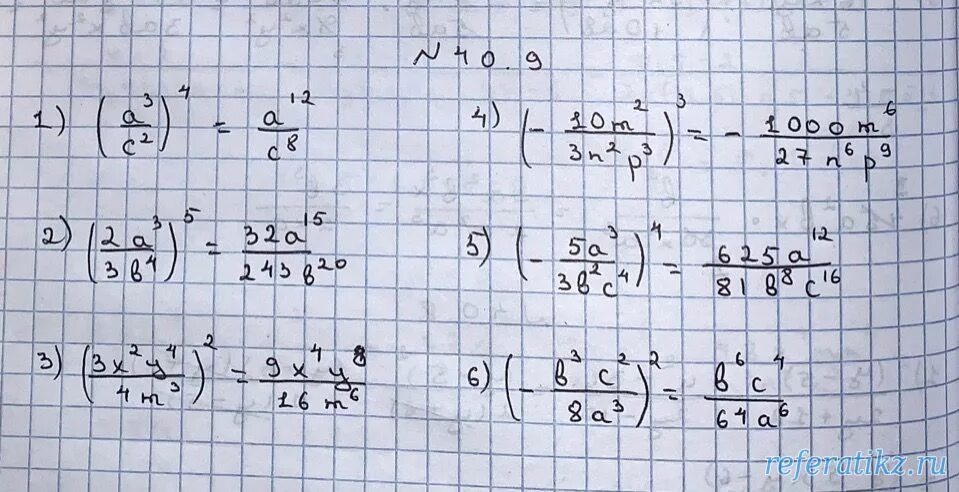 N 40.9
1) (a³/c²)⁴ = a¹²/c⁸
2) (2a³/3b⁴)⁵ = 32a¹⁵/243b²⁰
3) (3x²y⁴/4m³)² = 9x⁴y⁸/16m⁶
4) (- 10m²/3n²p³)³ = - 1000m⁶/27n⁶p⁹
5) (- 5a³/3b²c⁴)⁴ = 625a¹²/81b⁸c¹⁶
6) (- b³c²/8a³)² = b⁶c⁴/64a⁶
referatikz.ru